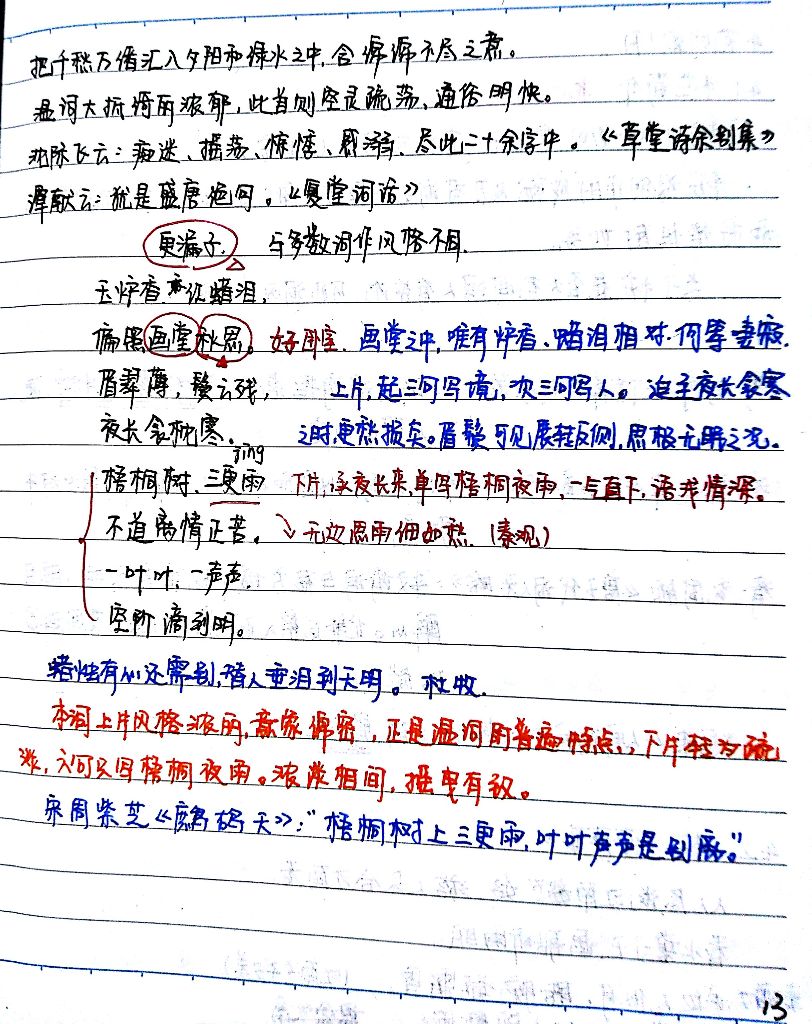 把千愁万绪汇入夕阳和绿水之中,含绵绵不尽之意。
温词大抵绮丽浓郁,此首则空灵疏荡、通俗明快。
沈际飞云:痴迷、摇荡、惊悸、惑溺、尽此二十余字中。《草堂诗余别集》
谭献云:犹是盛唐绝句。《复堂词话》
更漏子. 与多数词作风格不同.
玉炉香,红蜡泪,
偏照画堂秋思。 好卧室. 画堂之中,唯有炉香、蜡泪相对.何等凄寂.
眉翠薄,鬓云残, 上片,起三句写境,次三句写人。迨至夜长衾寒
夜长衾枕寒。 之时,更愁损矣。眉鬓可见展转反侧,思极无眠之况。
jing
梧桐树,三更雨 下片,承夜长来,单写梧桐夜雨,一气直下,语浅情深。
不道离情正苦。 无边思雨细如愁.(秦观)
一叶叶,一声声.
空阶滴到明。
蜡烛有心还需别,替人垂泪到天明。 杜牧.
本词上片风格浓丽,意象绵密,正是温词的普遍特点,下片转为疏
淡,六句只写梧桐夜雨。浓淡相间,摇曳有致。
宋周紫芝《鹧鸪天》:"梧桐树上三更雨,叶叶声声是别离。"
13